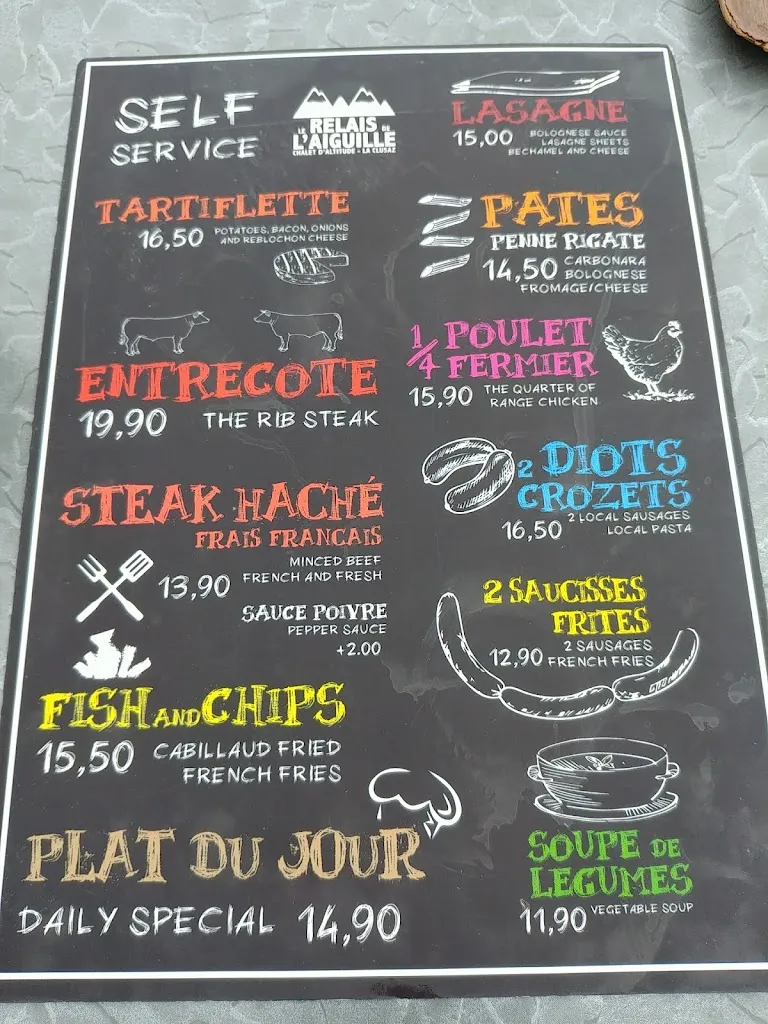 SELF
SERVICE
LE RELAIS DE
L'AIGUILLE
CHALET D'ALTITUDE - LA CLUSAZ
TARTIFLETTE
16,50 POTATOES, BACON, ONIONS
AND REBLOCHON CHEESE
ENTRECOTE
19,90 THE RIB STEAK
STEAK HACHÉ
FRAIS FRANCAIS
13,90 MINCED BEEF
FRENCH AND FRESH
SAUCE POIVRE
PEPPER SAUCE
+2.00
FISH AND CHIPS
15,50 CABILLAUD FRIED
FRENCH FRIES
PLAT DU JOUR
DAILY SPECIAL 14,90
LASAGNE
15,00 BOLOGNESE SAUCE
LASAGNE SHEETS
BECHAMEL AND CHEESE
PATES
PENNE RIGATE
14,50 CARBONARA
BOLOGNESE
FROMAGE/CHEESE
1/4 POULET
FERMIER
15,90 THE QUARTER OF
RANGE CHICKEN
2 DIOTS
CROZETS
16,50 2 LOCAL SAUSAGES
LOCAL PASTA
2 SAUCISSES
FRITES
2 SAUSAGES
12,90 FRENCH FRIES
SOUPE DE
LEGUMES
11,90 VEGETABLE SOUP